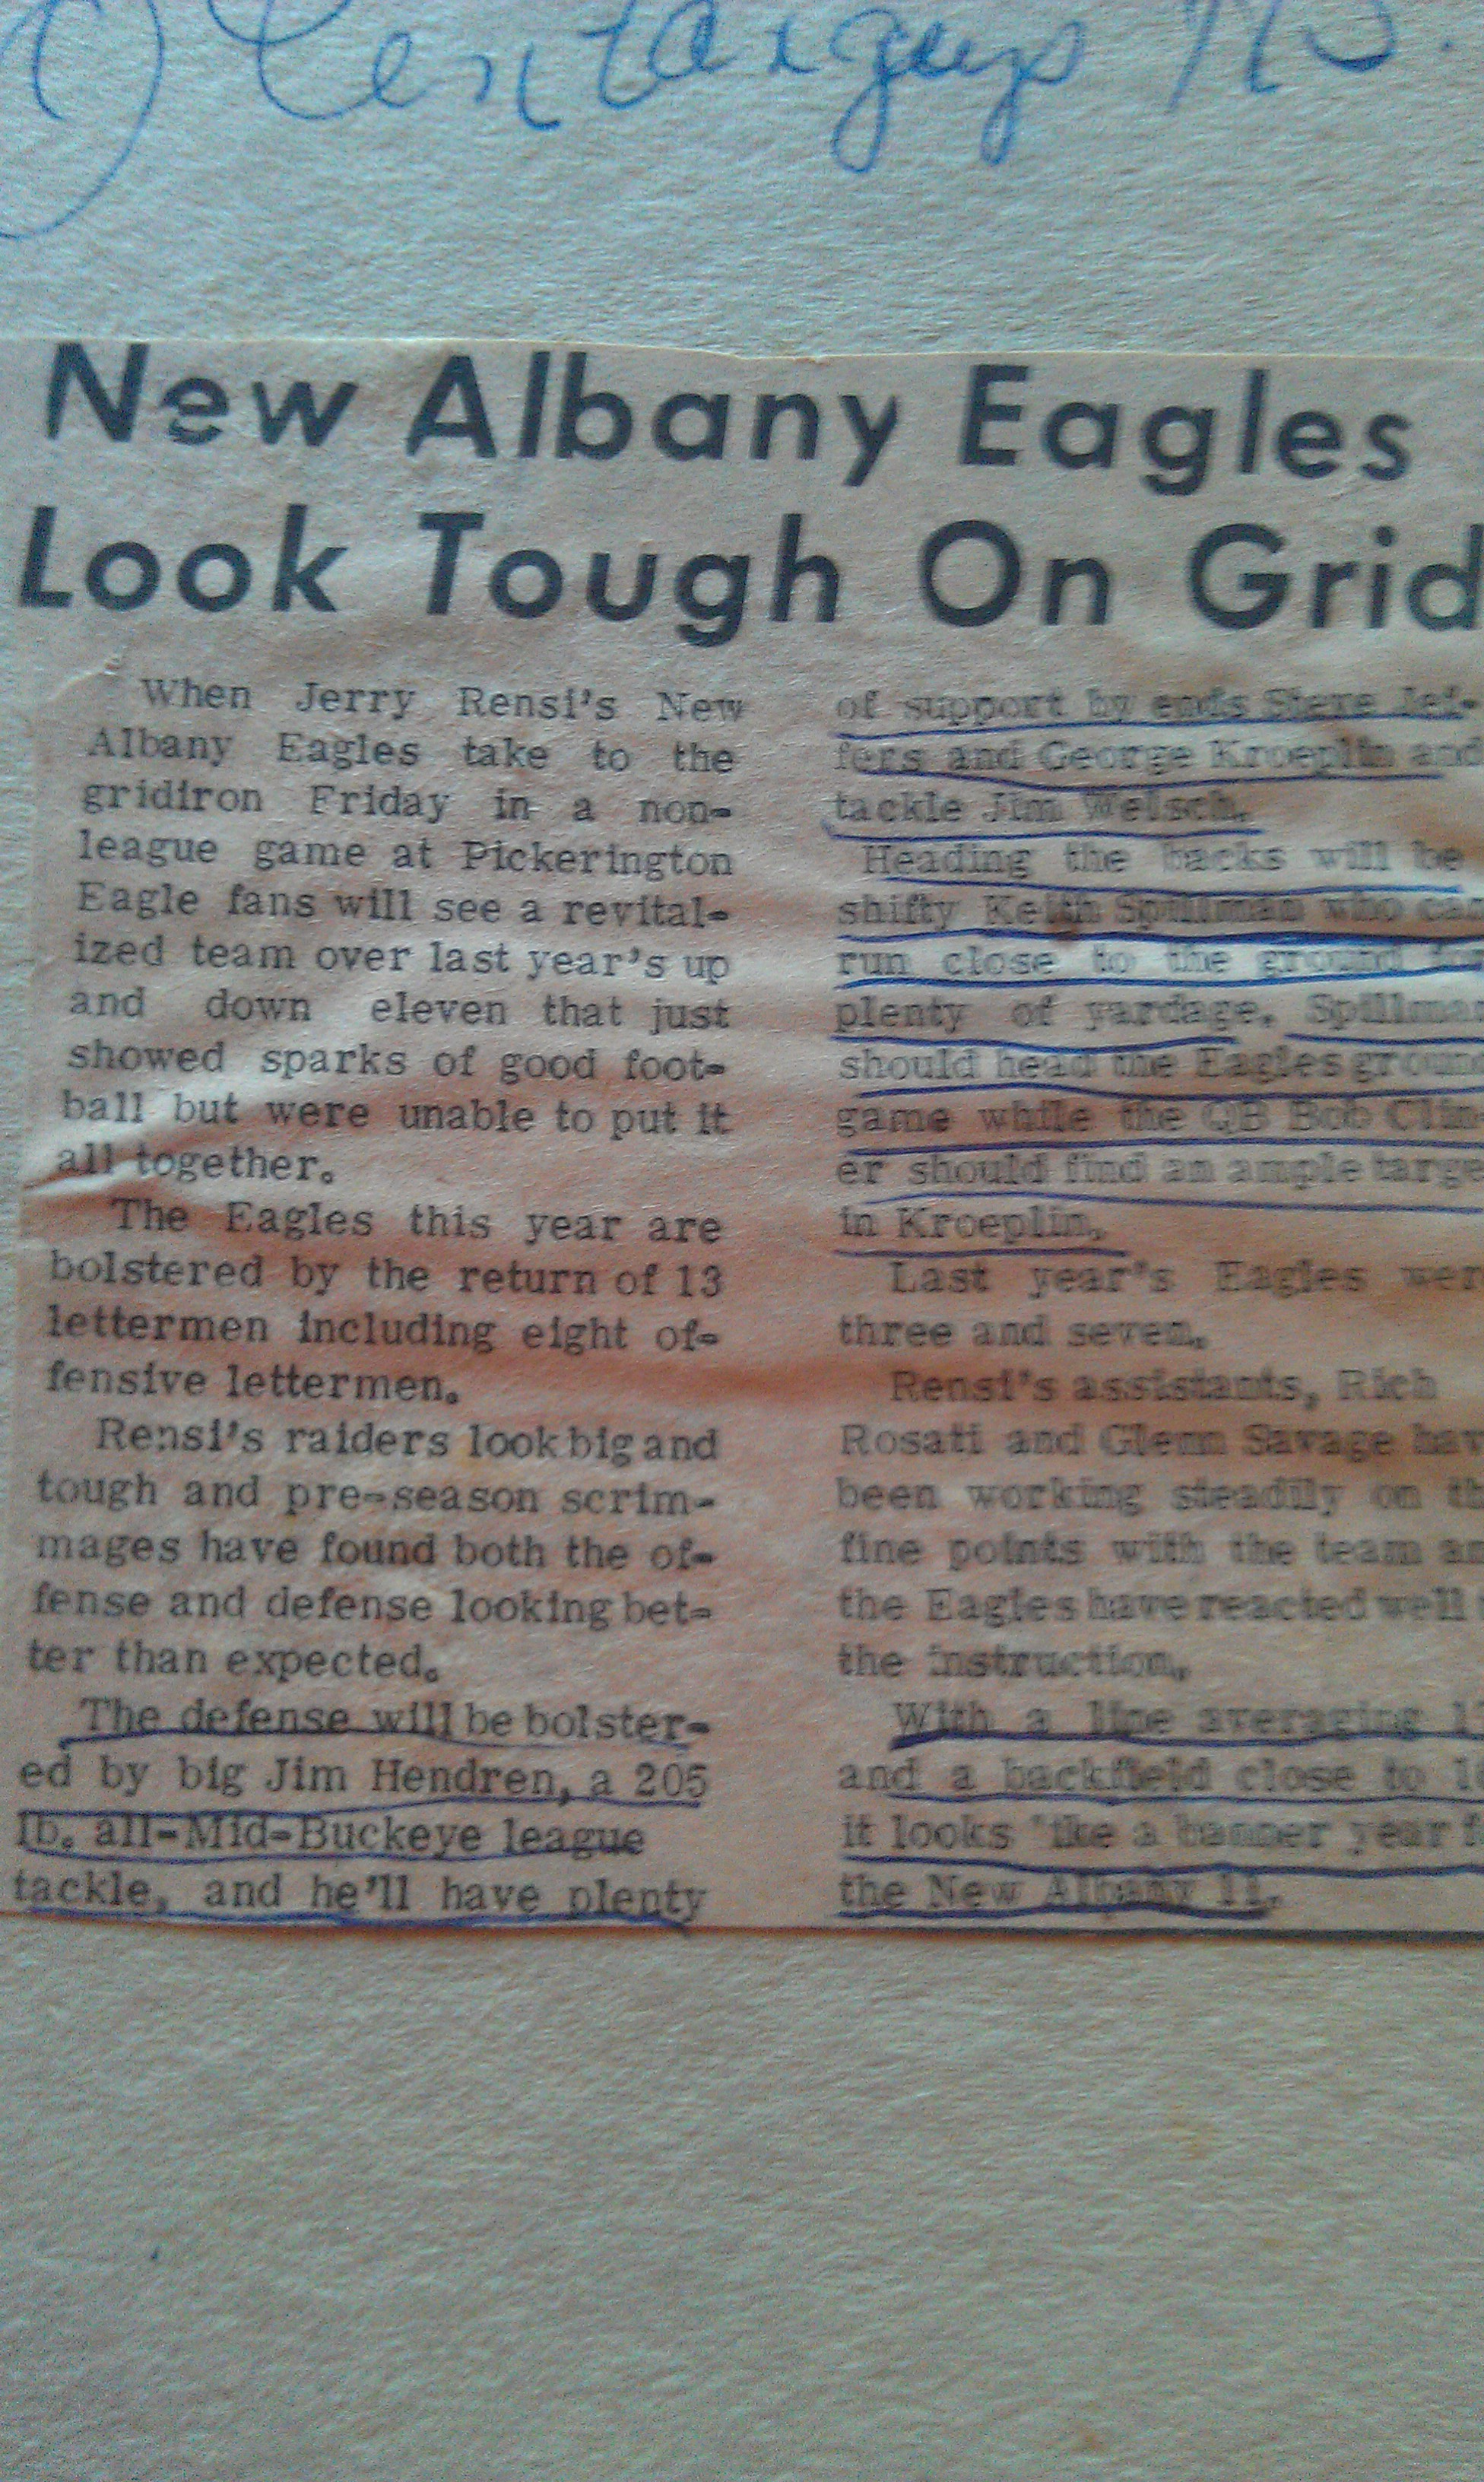 Olentangys
New Albany Eagles
Look Tough On Grid
When Jerry Rensi's New
Albany Eagles take to the
gridiron Friday in a non-
league game at Pickerington
Eagle fans will see a revital-
ized team over last year's up
and down eleven that just
showed sparks of good foot-
ball but were unable to put it
all together.
The Eagles this year are
bolstered by the return of 13
lettermen including eight of-
fensive lettermen.
Rensi's raiders look big and
tough and pre-season scrim-
mages have found both the of-
fense and defense looking bet-
ter than expected.
The defense will be bolster-
ed by big Jim Hendren, a 205
lb. all-Mid-Buckeye league
tackle, and he'll have plenty
of support by ends Steve Jef-
fers and George Kroeplin and
tackle Jim Welsch.
Heading the backs will be
shifty Keith Spillman who can
run close to the ground for
plenty of yardage. Spillman
should head the Eagles groun
game while the QB Bob Clin-
er should find an ample targe
in Kroeplin.
Last year's Eagles wer
three and seven.
Rensi's assistants, Rich
Rosati and Glenn Savage hav
been working steadily on th
fine points with the team an
the Eagles have reacted well
the instruction.
With a line averaging
and a backfield close to
it looks like a banner year f
the New Albany 11.